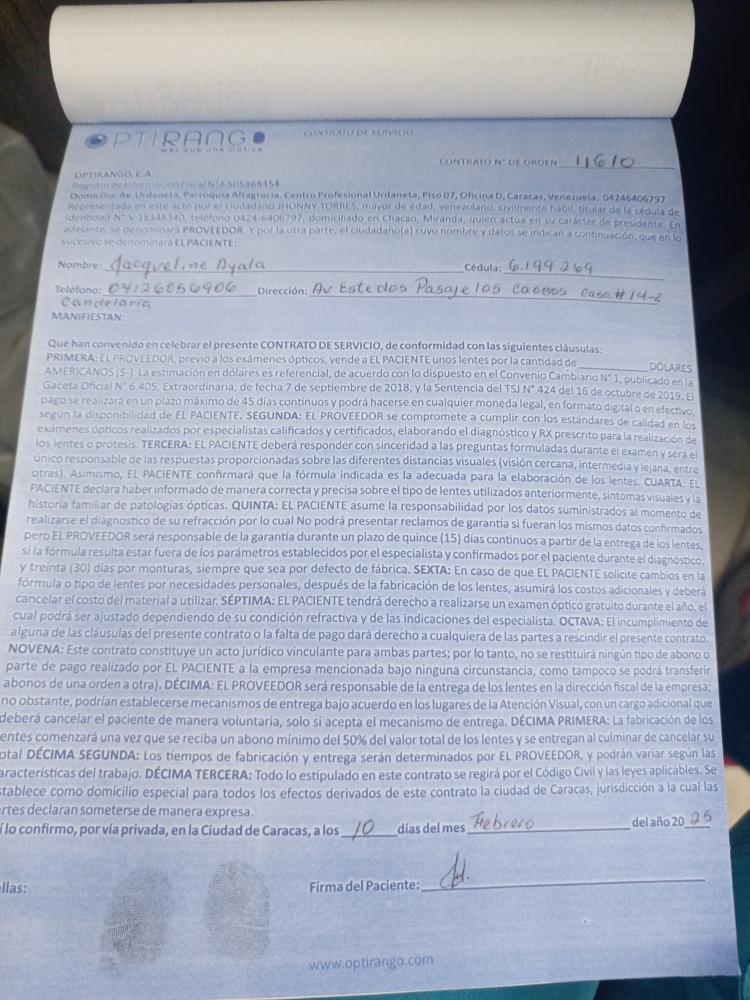 OPTIRANGO
Más que una Óptica
CONTRATO DE SERVICIO
CONTRATO N° DE ORDEN 11610
OPTIRANGO, C.A.
Registro de Información Fiscal N° J-505868454
Domicilio: Av. Urdaneta, Parroquia Altagracia, Centro Profesional Urdaneta, Piso 07, Oficina D, Caracas, Venezuela. 04246406797
Representada en este acto por el ciudadano JHONNY TORRES, mayor de edad, venezolano, civilmente hábil, titular de la cédula de
identidad N° V-18348340, teléfono 0424-6406797, domiciliado en Chacao, Miranda, quien actúa en su carácter de presidente. En
adelante, se denominará PROVEEDOR. Y por la otra parte, el ciudadano(a) cuyo nombre y datos se indican a continuación, que en lo
sucesivo se denominará EL PACIENTE:
Nombre: Jacqueline Ayala Cédula: 6.199 269
Teléfono: 04126056906 Dirección: Av Este dos Pasaje los caobos casa # 14-2
Candelaria
MANIFIESTAN:
Que han convenido en celebrar el presente CONTRATO DE SERVICIO, de conformidad con las siguientes cláusulas:
PRIMERA: EL PROVEEDOR, previo a los exámenes ópticos, vende a EL PACIENTE unos lentes por la cantidad de ____________ DÓLARES
AMERICANOS ($-). La estimación en dólares es referencial, de acuerdo con lo dispuesto en el Convenio Cambiario N° 1, publicado en la
Gaceta Oficial N° 6.405, Extraordinaria, de fecha 7 de septiembre de 2018, y la Sentencia del TSJ N° 424 del 16 de octubre de 2019. El
pago se realizará en un plazo máximo de 45 días continuos y podrá hacerse en cualquier moneda legal, en formato digital o en efectivo,
según la disponibilidad de EL PACIENTE. SEGUNDA: EL PROVEEDOR se compromete a cumplir con los estándares de calidad en los
exámenes ópticos realizados por especialistas calificados y certificados, elaborando el diagnóstico y RX prescrito para la realización de
los lentes o prótesis. TERCERA: EL PACIENTE deberá responder con sinceridad a las preguntas formuladas durante el examen y será el
único responsable de las respuestas proporcionadas sobre las diferentes distancias visuales (visión cercana, intermedia y lejana, entre
otras). Asimismo, EL PACIENTE confirmará que la fórmula indicada es la adecuada para la elaboración de los lentes. CUARTA: EL
PACIENTE declara haber informado de manera correcta y precisa sobre el tipo de lentes utilizados anteriormente, síntomas visuales y la
historia familiar de patologías ópticas. QUINTA: EL PACIENTE asume la responsabilidad por los datos suministrados al momento de
realizarse el diagnostico de su refracción por lo cual No podrá presentar reclamos de garantía si fueran los mismos datos confirmados
pero EL PROVEEDOR será responsable de la garantía durante un plazo de quince (15) días continuos a partir de la entrega de los lentes,
si la fórmula resulta estar fuera de los parámetros establecidos por el especialista y confirmados por el paciente durante el diagnóstico,
y treinta (30) días por monturas, siempre que sea por defecto de fábrica. SEXTA: En caso de que EL PACIENTE solicite cambios en la
fórmula o tipo de lentes por necesidades personales, después de la fabricación de los lentes, asumirá los costos adicionales y deberá
cancelar el costo del material a utilizar. SÉPTIMA: EL PACIENTE tendrá derecho a realizarse un examen óptico gratuito durante el año, el
cual podrá ser ajustado dependiendo de su condición refractiva y de las indicaciones del especialista. OCTAVA: El incumplimiento de
alguna de las cláusulas del presente contrato o la falta de pago dará derecho a cualquiera de las partes a rescindir el presente contrato.
NOVENA: Este contrato constituye un acto jurídico vinculante para ambas partes; por lo tanto, no se restituirá ningún tipo de abono o
parte de pago realizado por EL PACIENTE a la empresa mencionada bajo ninguna circunstancia, como tampoco se podrá transferir
abonos de una orden a otra). DÉCIMA: EL PROVEEDOR será responsable de la entrega de los lentes en la dirección fiscal de la empresa;
no obstante, podrían establecerse mecanismos de entrega bajo acuerdo en los lugares de la Atención Visual, con un cargo adicional que
deberá cancelar el paciente de manera voluntaria, solo si acepta el mecanismo de entrega. DÉCIMA PRIMERA: La fabricación de los
entes comenzará una vez que se reciba un abono mínimo del 50% del valor total de los lentes y se entregan al culminar de cancelar su
otal DÉCIMA SEGUNDA: Los tiempos de fabricación y entrega serán determinados por EL PROVEEDOR, y podrán variar según las
aracterísticas del trabajo. DÉCIMA TERCERA: Todo lo estipulado en este contrato se regirá por el Código Civil y las leyes aplicables. Se
stablece como domicilio especial para todos los efectos derivados de este contrato la ciudad de Caracas, jurisdicción a la cual las
rtes declaran someterse de manera expresa.
í lo confirmo, por vía privada, en la Ciudad de Caracas, a los 10 días del mes Febrero del año 20 25
llas:
Firma del Paciente:
www.optirango.com